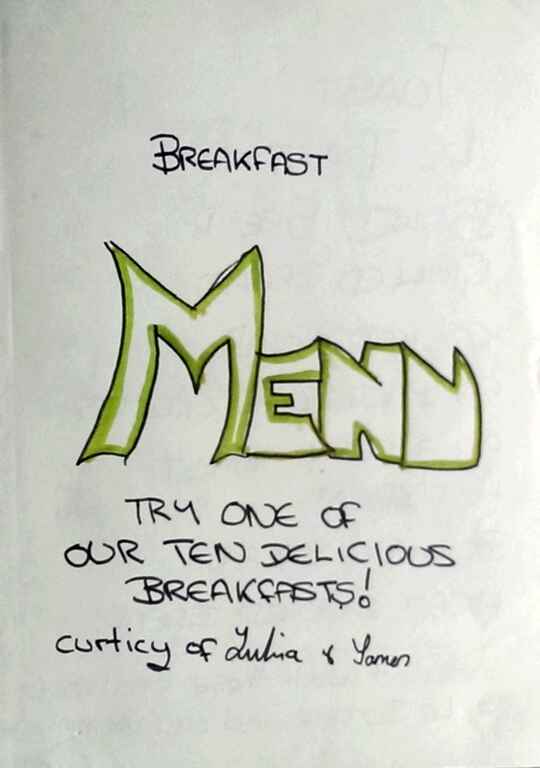 BREAKFAST
MENU
TRY ONE OF
OUR TEN DELICIOUS
BREAKFASTS!
curticy of &